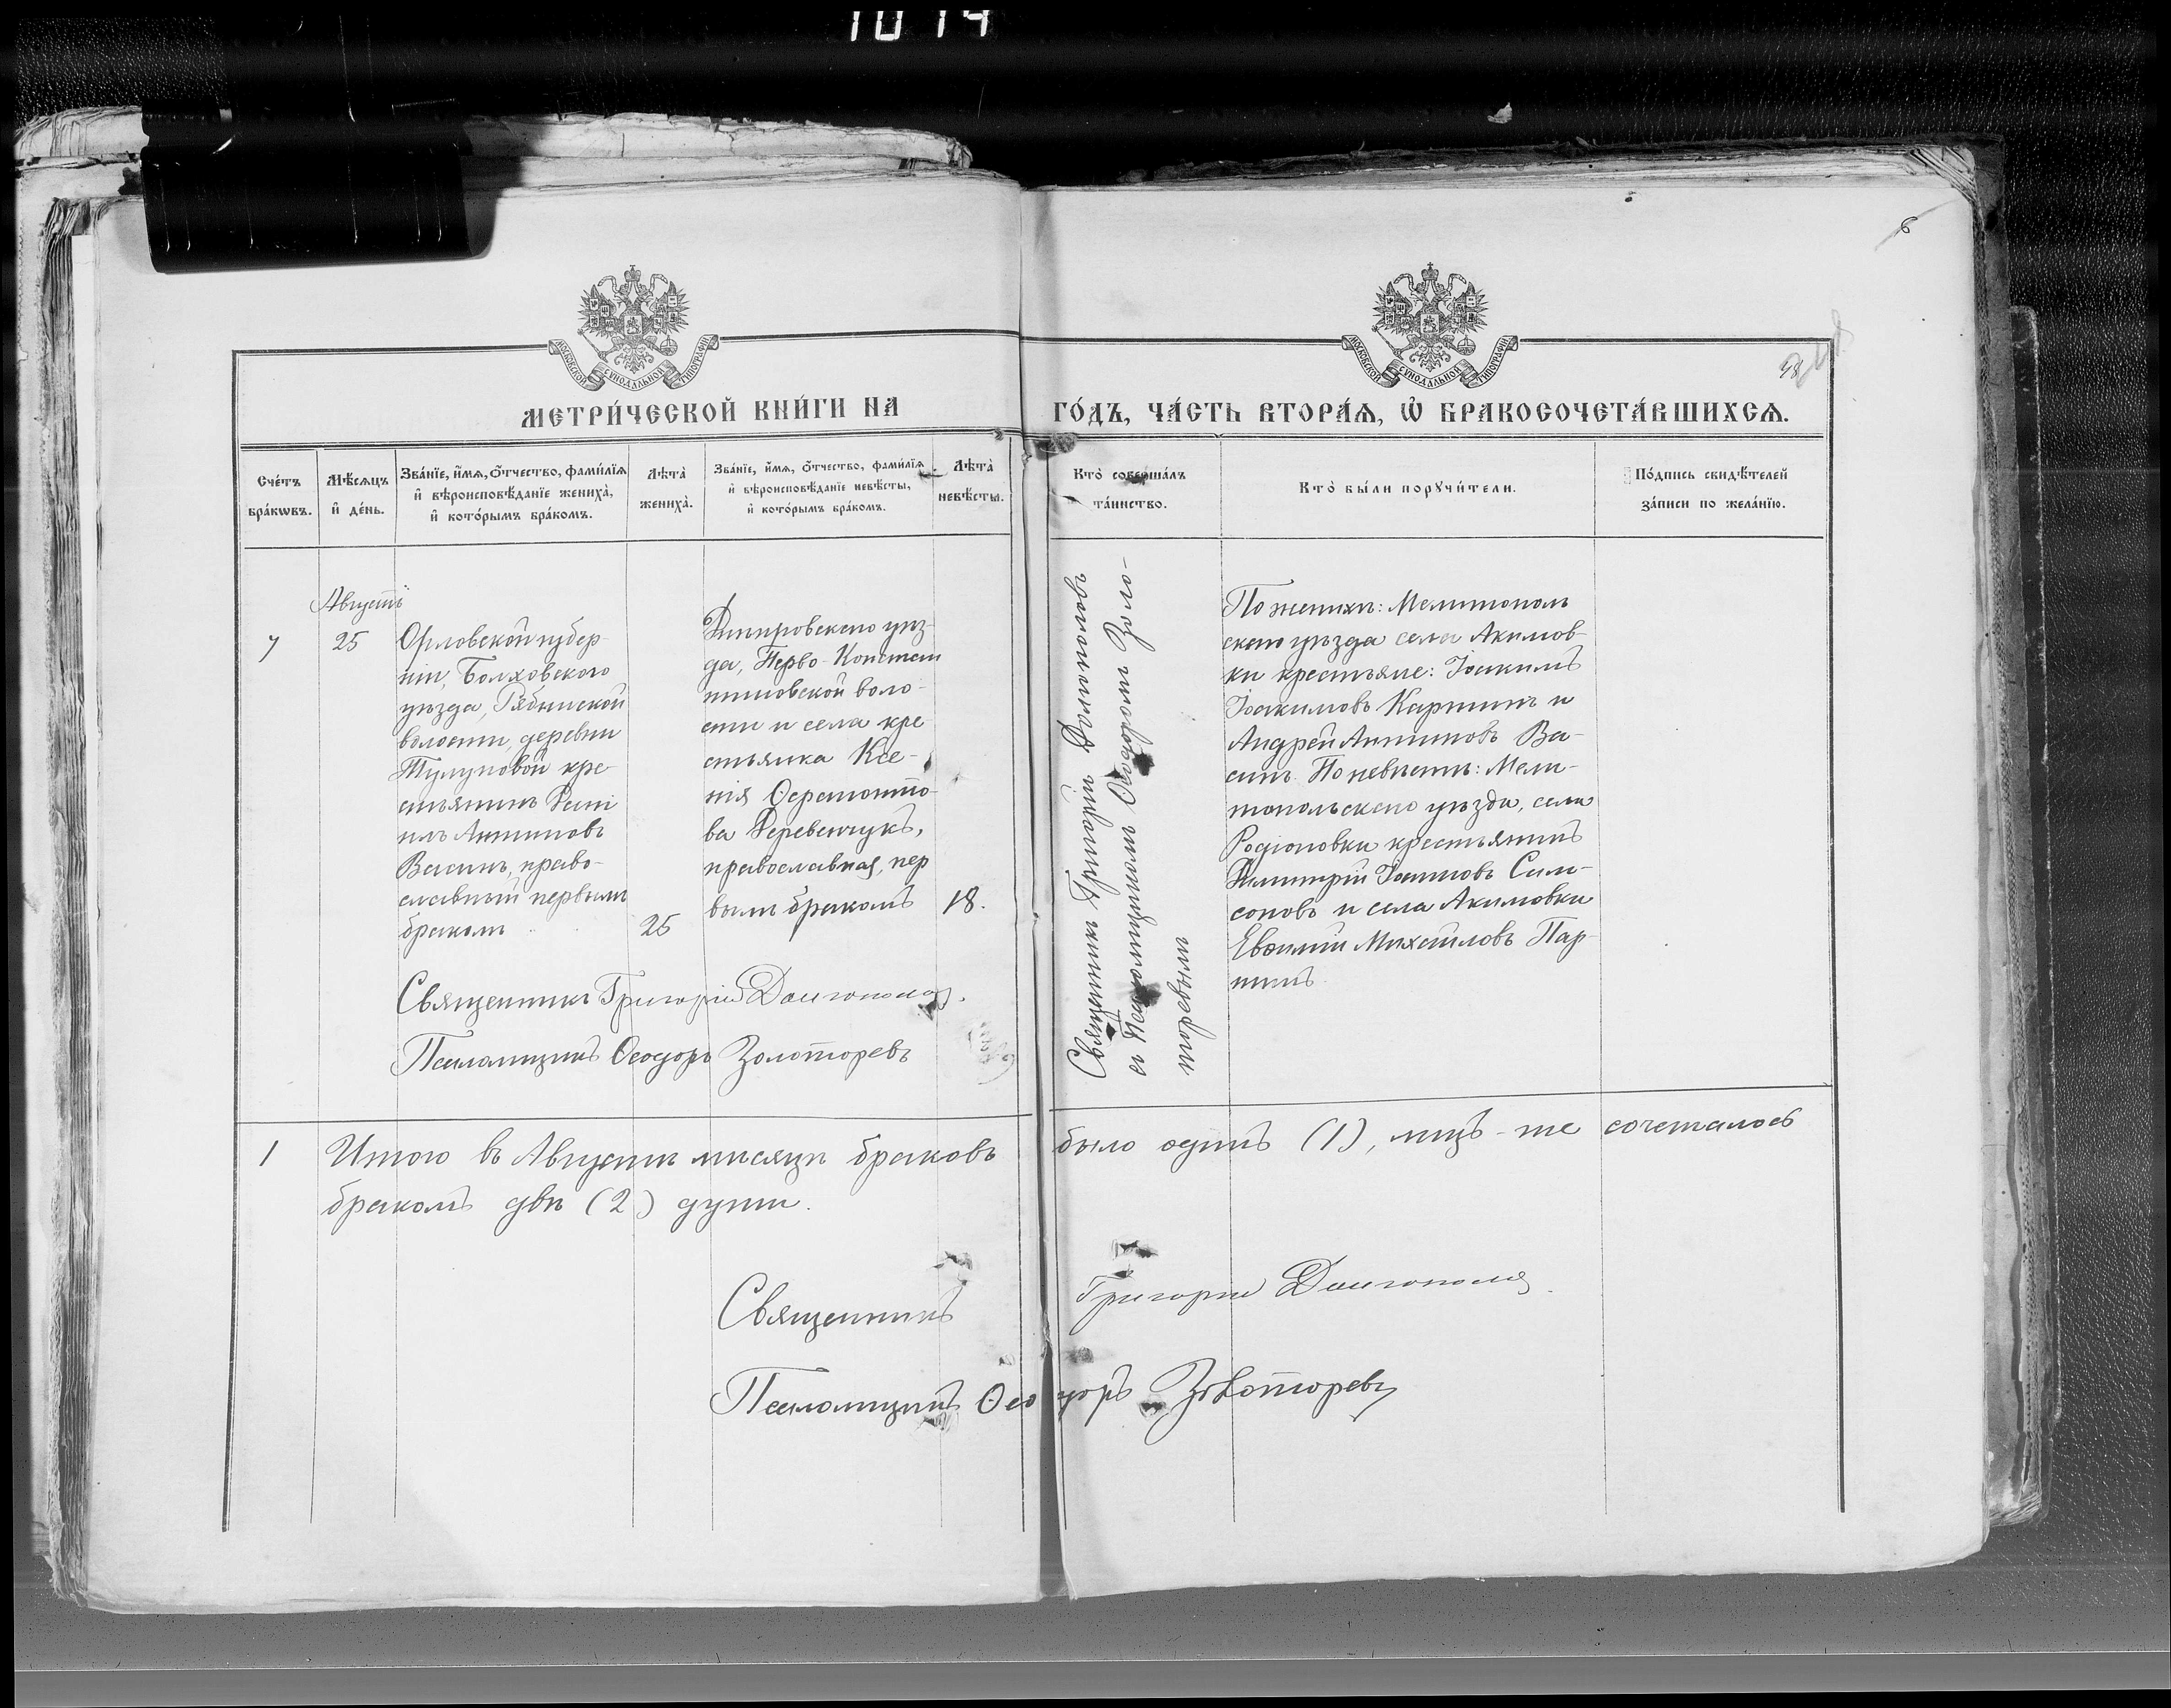 1014
6
МОСКОВСКОЙ СѴНОДАЛЬНОЙ ТИПОГРАФІИ
МОСКОВСКОЙ СѴНОДАЛЬНОЙ ТИПОГРАФІИ
МЕТРИ́ЧЕСКОЙ КНИ́ГИ НА
ГО́ДЪ, ЧА́СТЬ ВТОРА́Ѧ, Ѡ҆ БРАКОСОЧЕТА́ВШИХСѦ.
Сче́тъ
бра́кѡвъ.
Мѣ́сѧцъ
и҆ де́нь.
Зва́нїе, и҆́мѧ, ѻ҆́тчество, фами́лїѧ
и҆ вѣроисповѣ́данїе жениха̀,
и҆ кото́рымъ бра́комъ.
Лѣта̀
жениха̀.
Зва́нїе, и҆́мѧ, ѻ҆́тчество, фами́лїѧ
и҆ вѣроисповѣ́данїе невѣ́сты,
и҆ кото́рымъ бра́комъ.
Лѣта̀
невѣ́сты.
Кто̀ соверша́лъ
та́инство.
Кто̀ бы́ли порꙋчи́тели.
По́дпись свидѣ́телей
за́писи по жела́нїю.
7
Августъ
25
Орловской губер-
ніи, Болховского
уѣзда, Рябинской
волости, деревни
Тулуповой кре-
стьянинъ Дані
илъ Антиповъ
Васинъ, право-
славный первымъ
бракомъ
25
Днѣпровскаго уѣз-
да, Перво-Констан
тиновской воло-
сти и села кре
стьянка Ксе-
нія Ѳерапонто-
ва Деревенчукъ,
православная, пер
вымъ бракомъ
18.
Священникъ Григорій Долгополов
съ Псаломщикомъ Ѳеодоромъ Золо-
торевымъ
По женихѣ: Мелитополь
скаго уѣзда села Акимов-
ки крестьяне: Іоакимъ
Іоакимовъ Картинъ и
Андрей Антиповъ Ва-
синъ. По невѣстѣ: Мели-
топольскаго уѣзда, села
Родіоновки крестьянинъ
Димитрій Іоанновъ Сам-
соновъ и села Акимовки
Евѳимій Михаиловъ Пар-
шинъ
Священникъ Григорій Долгополов.
Псаломщикъ Ѳеодоръ Золоторевъ
1 Итого въ Августѣ мѣсяцѣ браковъ было одинъ (1), лицъ-же сочеталось
бракомъ двѣ (2) души.
Священникъ Григорій Долгополов.
Псаломщикъ Ѳеодоръ Золоторевъ